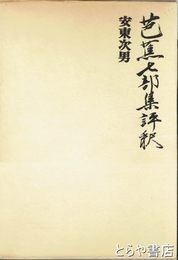 芭蕉七部集評釈
安東次男
古書
とらや書店